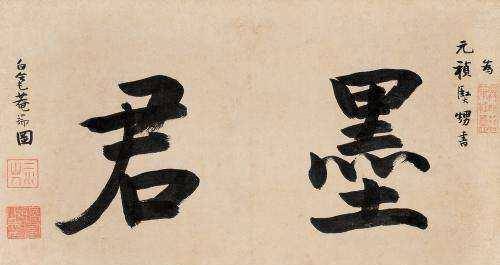 為
元禎賢甥書
墨君
白毫菴瑞圖